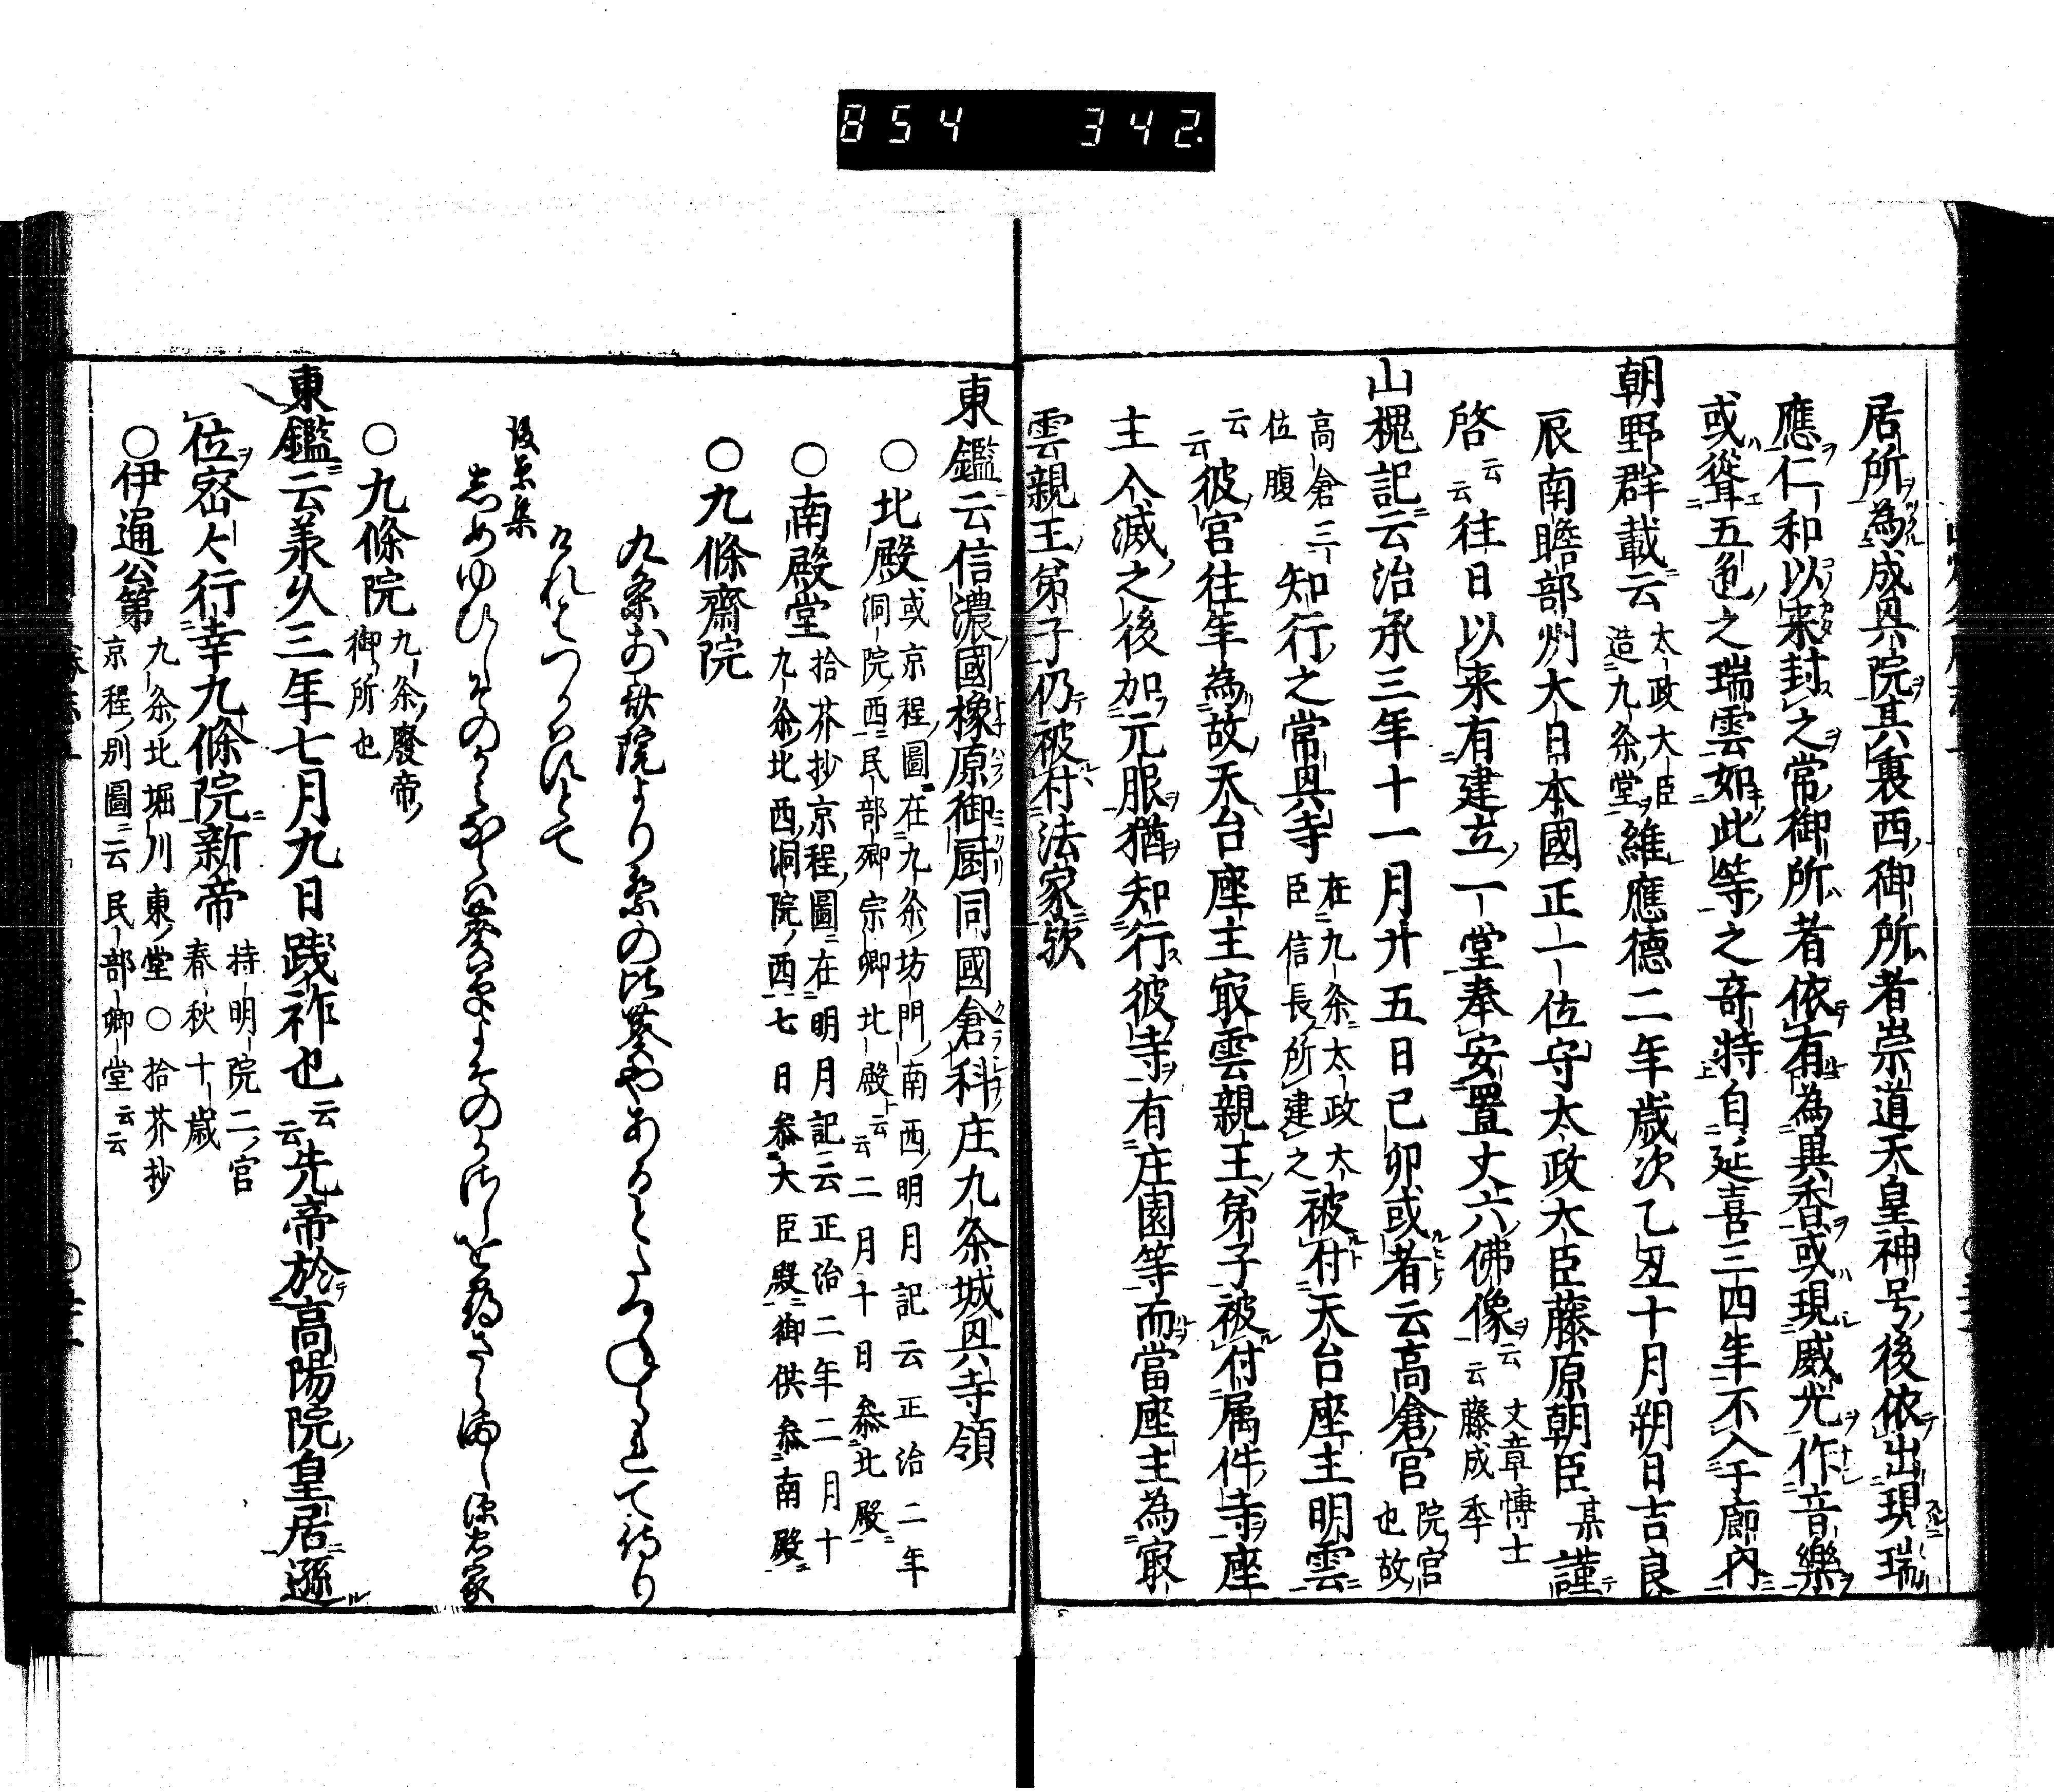 854 342.
居所為成興院其裏西御所者崇道天皇神号後依出現瑞
應仁和以来封之常御所者依有為異香或現威光作音樂
或聳五色之瑞雲如此等之奇特自延喜三四年不入于廊内
朝野群載云太政大臣造九条堂維應徳二年歳次乙丑十月朔日吉良
辰南瞻部州大日本國正一位守太政大臣藤原朝臣某謹
啓云云往日以来有建立一堂奉安置丈六佛像云云文章博士藤成季
山槐記云治承三年十一月廿五日己卯或者云高倉宮院宮也故
高倉三位腹云云知行之常興寺在九条太政大臣信長所建之被付天台座主明雲
云云彼宮往年為故天台座主㝡雲親王弟子被付属件寺座
主入滅之後加元服猶知行彼寺有庄園等而當座主為㝡
雲親王弟子仍被付法家欤
東鑑云信濃國橡原御厨同國倉科庄九条城興寺領
○北殿或京程圖在九条坊門南西洞院西民部卿宗卿北殿云云明月記云正治二年二月十日叅北殿
○南殿堂拾芥抄京程圖在九条北西洞院西明月記云正治二年二月十七日叅大臣殿御供叅南殿
○九條齋院
九条前斎院より祭の比葵やあるとたつねられて侍り
けれはつかはすとて
後京集
しめゆひし
○九條院九条廢帝御所也
東鑑云承久三年七月九日践祚也云云先帝於高陽院皇居遜
位密々行幸九條院新帝持明院二宮春秋十歳
○伊通公第九条北堀川東堂○拾芥抄京程別圖云民部卿堂云云